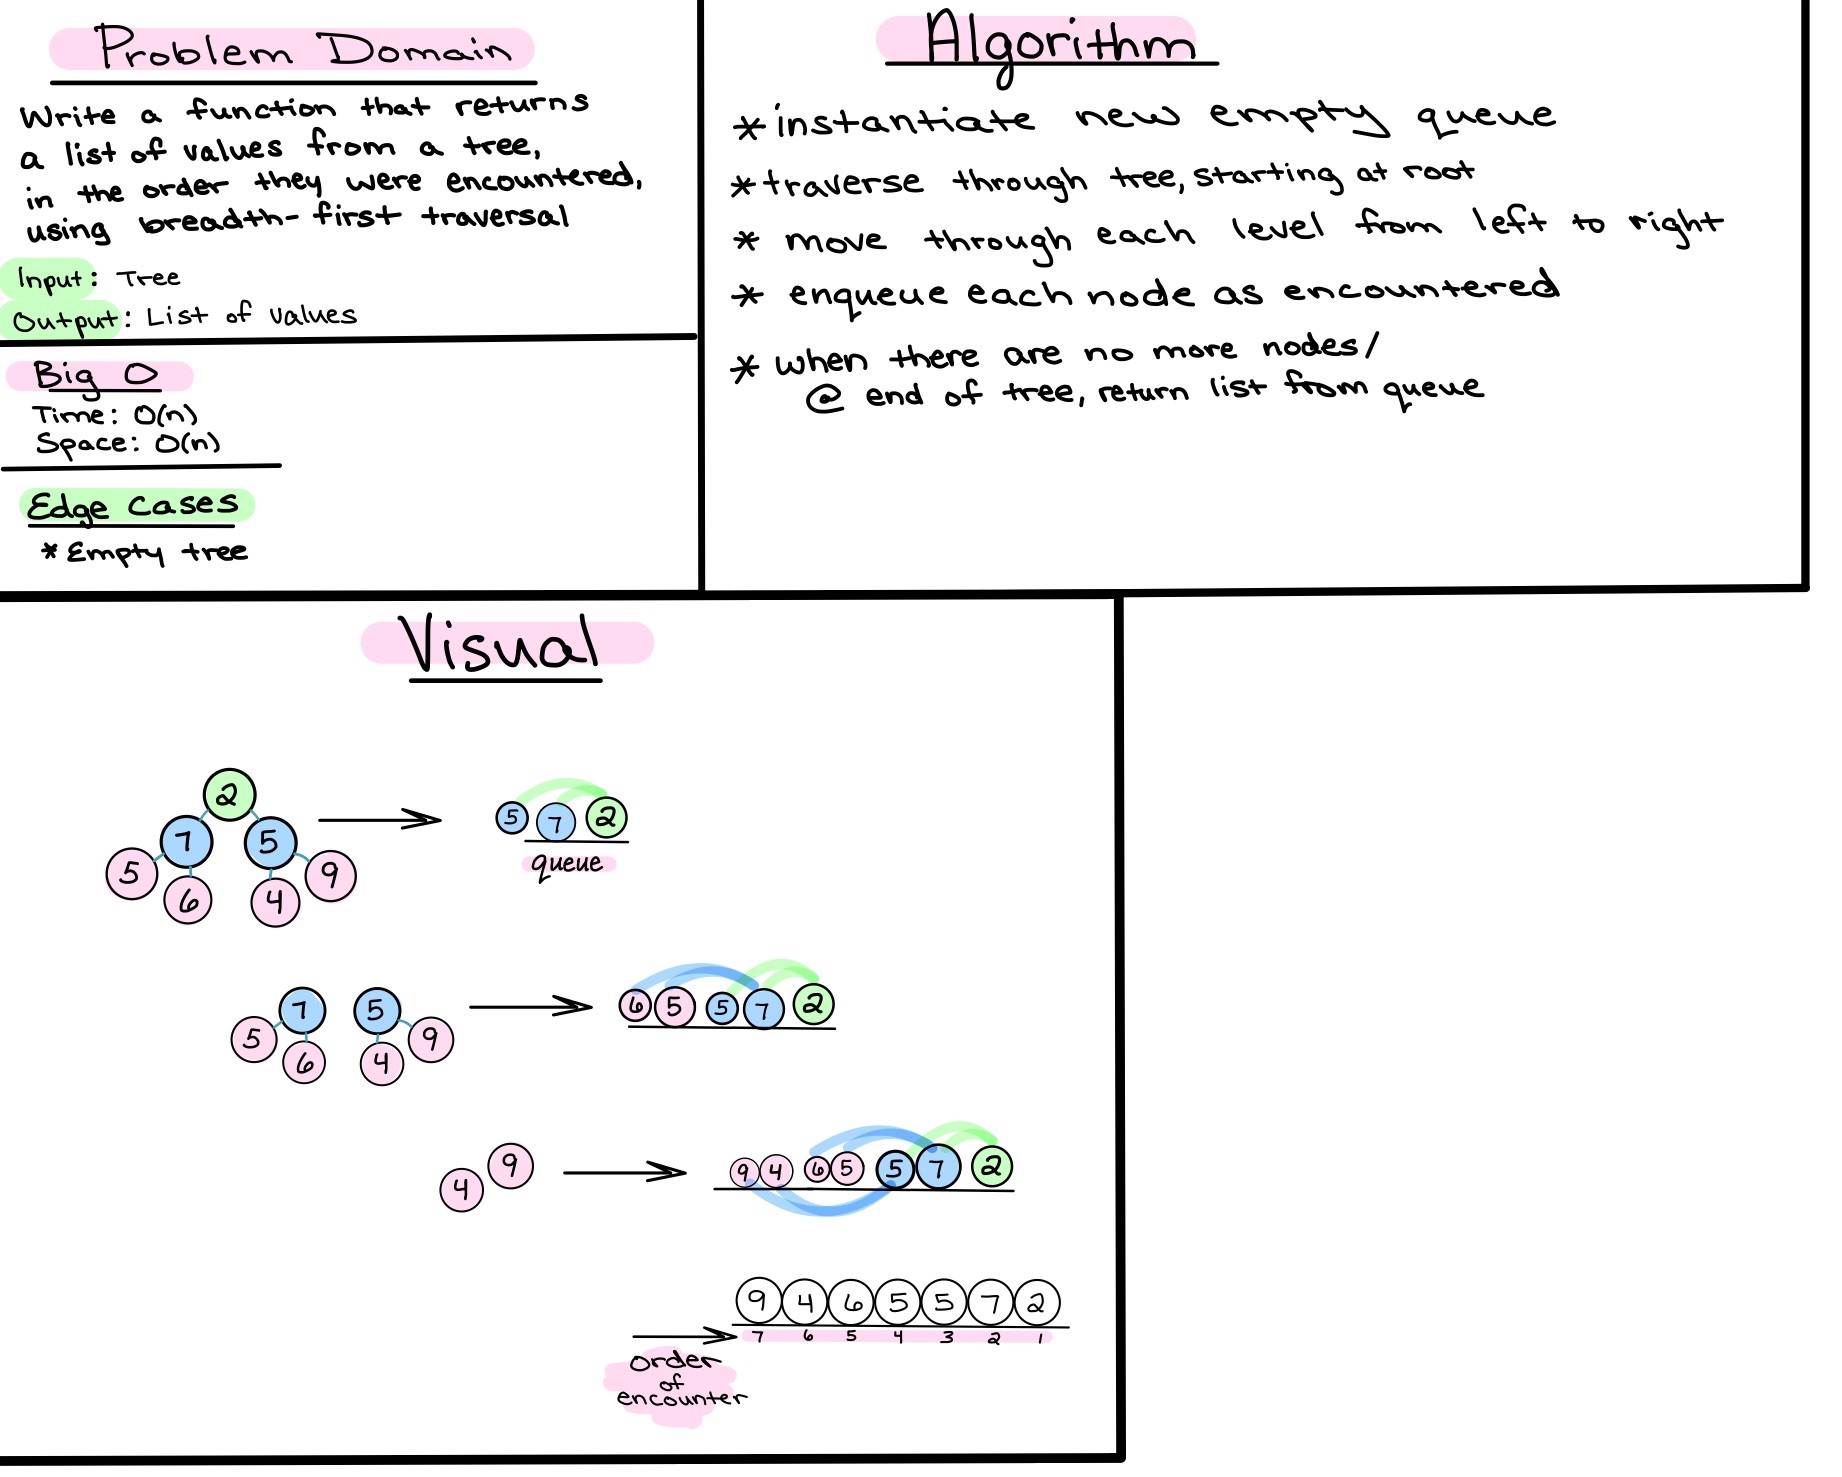 Problem Domain
Write a function that returns
a list of values from a tree,
in the order they were encountered,
using breadth-first traversal
Input: Tree
Output: List of values
Big O
Time: O(n)
Space: O(n)
Edge Cases
* Empty tree
Algorithm
* instantiate new empty queue
* traverse through tree, starting at root
* move through each level from left to right
* enqueue each node as encountered
* when there are no more nodes/
@ end of tree, return list from queue
Visual
2
7 5
5 6 4 9
5 7 2
queue
7 5
5 6 4 9
6 5 5 7 2
4 9
9 4 6 5 5 7 2
9 4 6 5 5 7 2
7 6 5 4 3 2 1
order
of
encounter